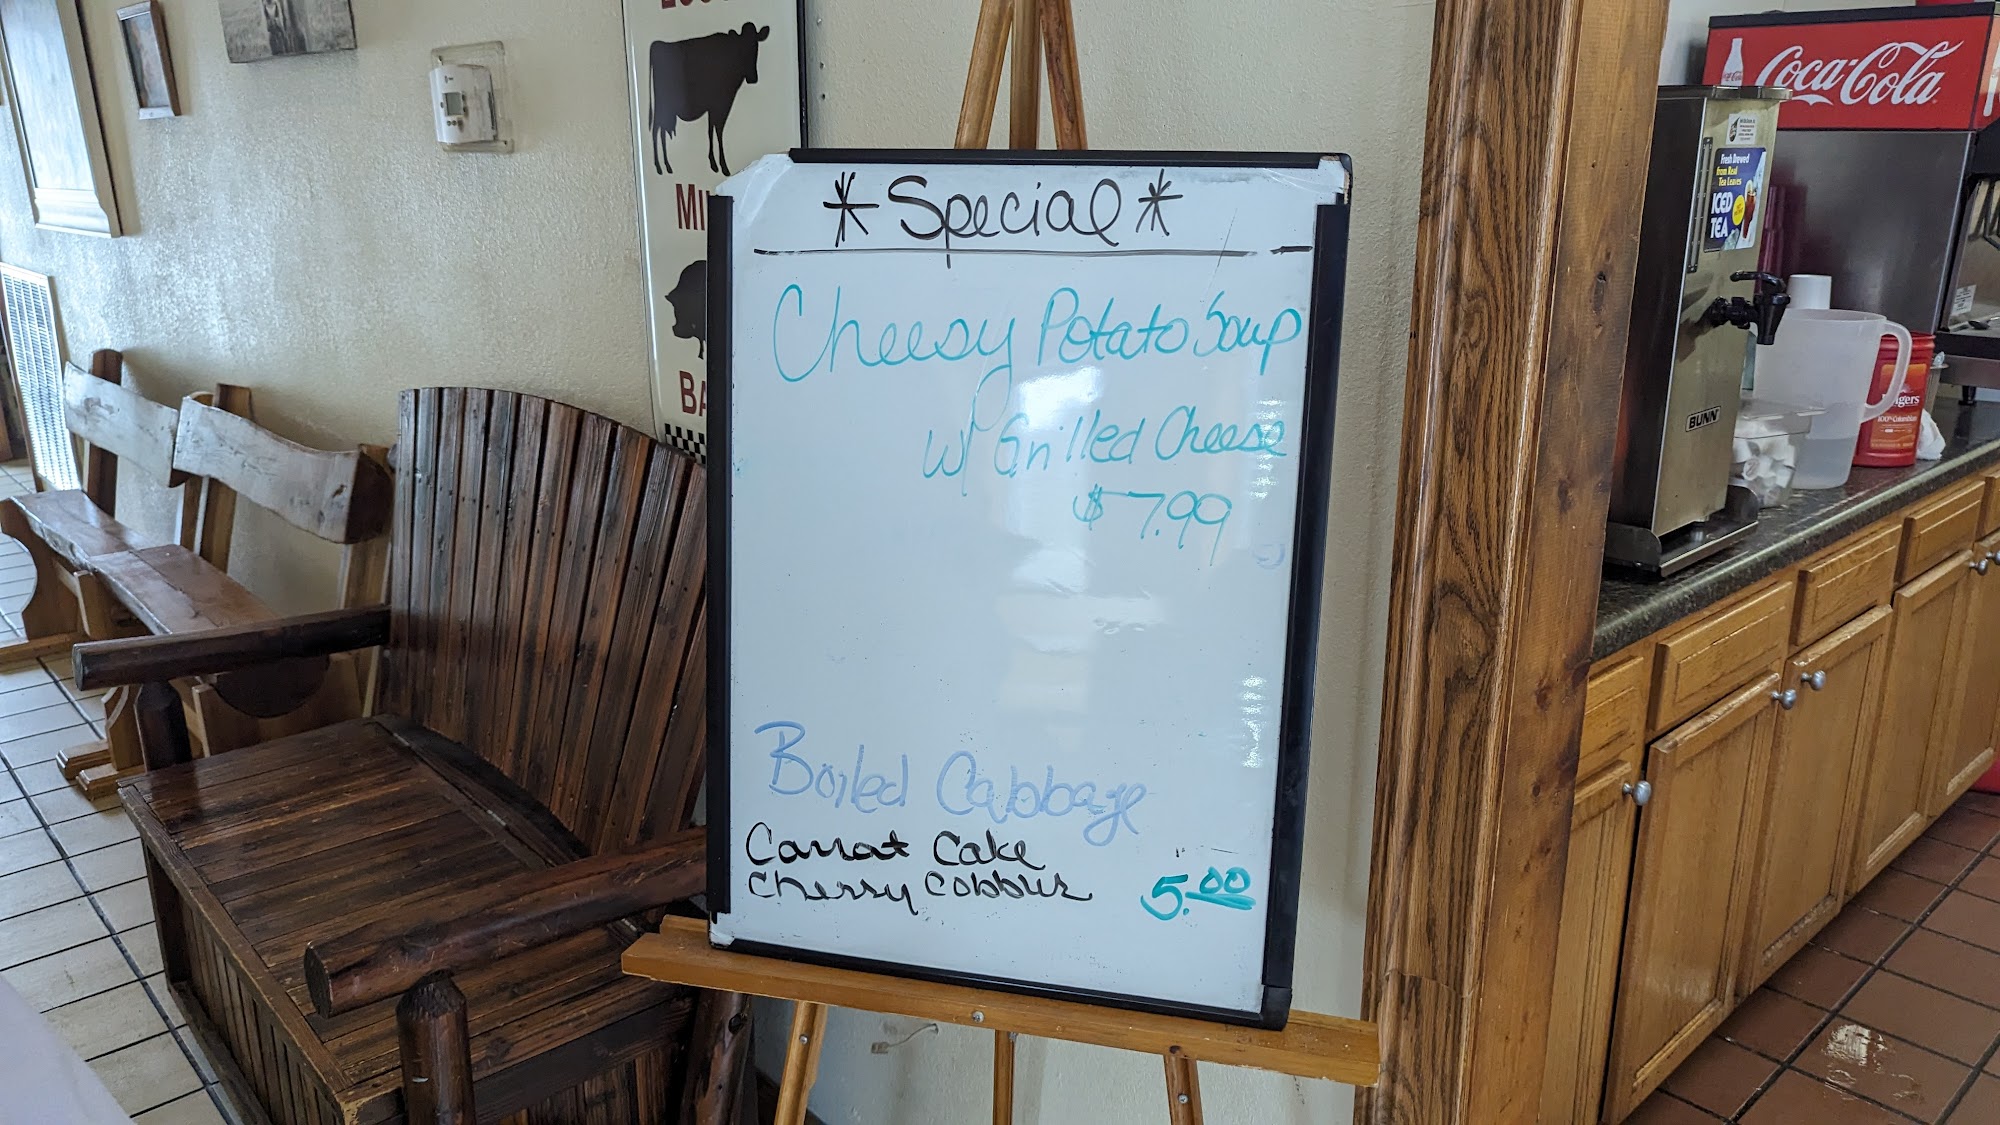 MI
BA
* Special *
Cheesy Potato Soup
w/ Grilled Cheese
$7.99
Boiled Cabbage
Carrot Cake
Cherry Cobbler 5.00
Coca-Cola
Fresh Brewed
from Real
Tea Leaves
ICED
TEA
BUNN
gers
100% Colombian